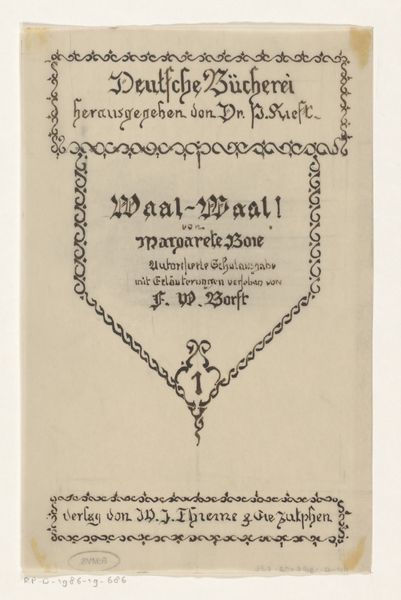 Deutsche Bücherei
herausgegeben von Dr. P. Kiest.
Waal-Waal!
von
Margarete Boie
Autorisierte Schulausgabe
mit Erläuterungen versehen von
F. W. Borst
1
Verlag von W. J. Thieme & Cie Zutphen
RP-D-1986-19-686